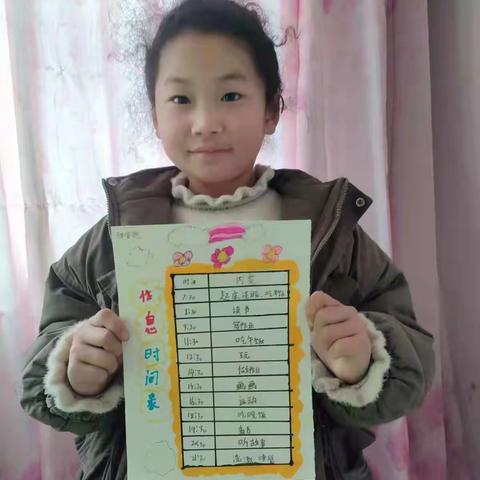 作息时间表
时间 内容
7:30 起床、洗脸、吃早饭
8:30 读书
9:30 写作业
11:30 吃午饭
12:30 玩
14:30 做作业
15:30 画画
16:30 运动
18:30 吃晚饭
19:30 看书
20:30 听故事
洗漱、睡觉